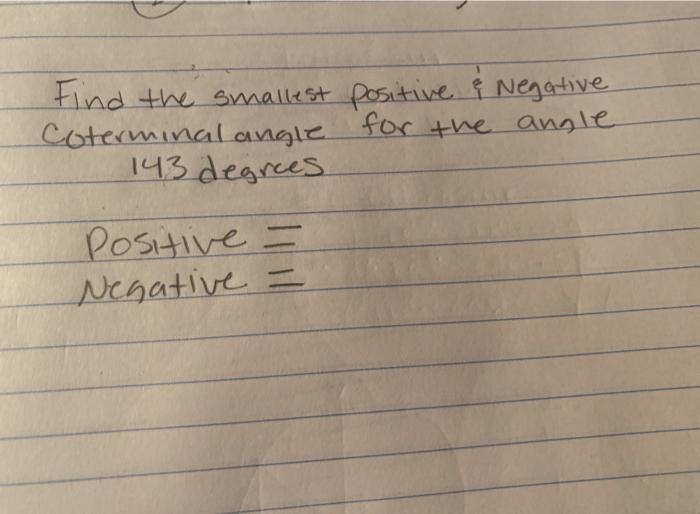 Find the smallest positive & Negative
Coterminal angle for the angle
143 degrees
Positive =
Negative =